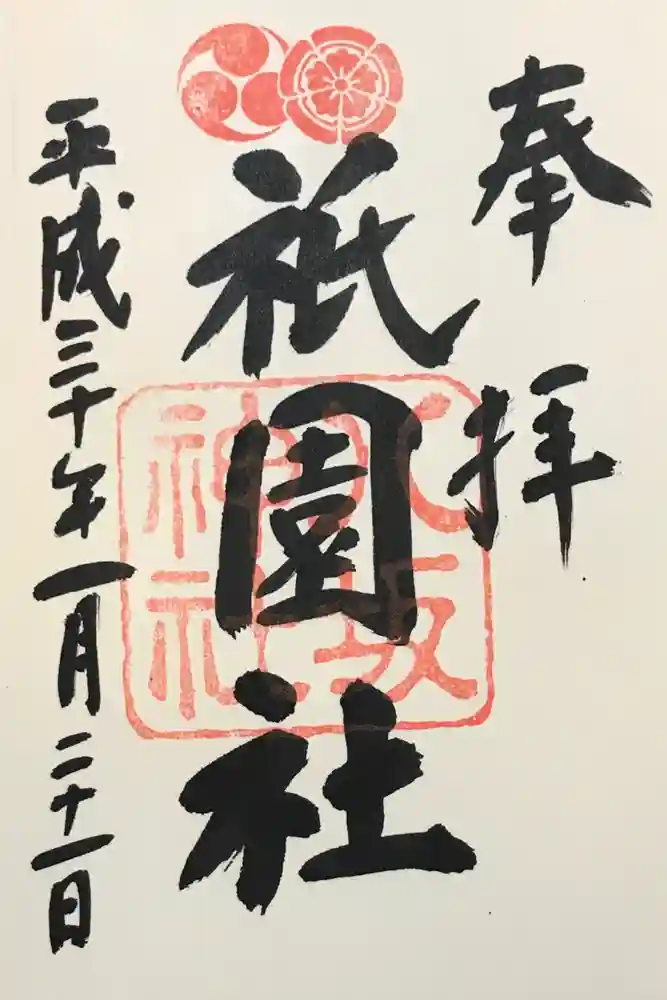 奉拝
八坂神社
祇園社
平成三十年一月二十一日